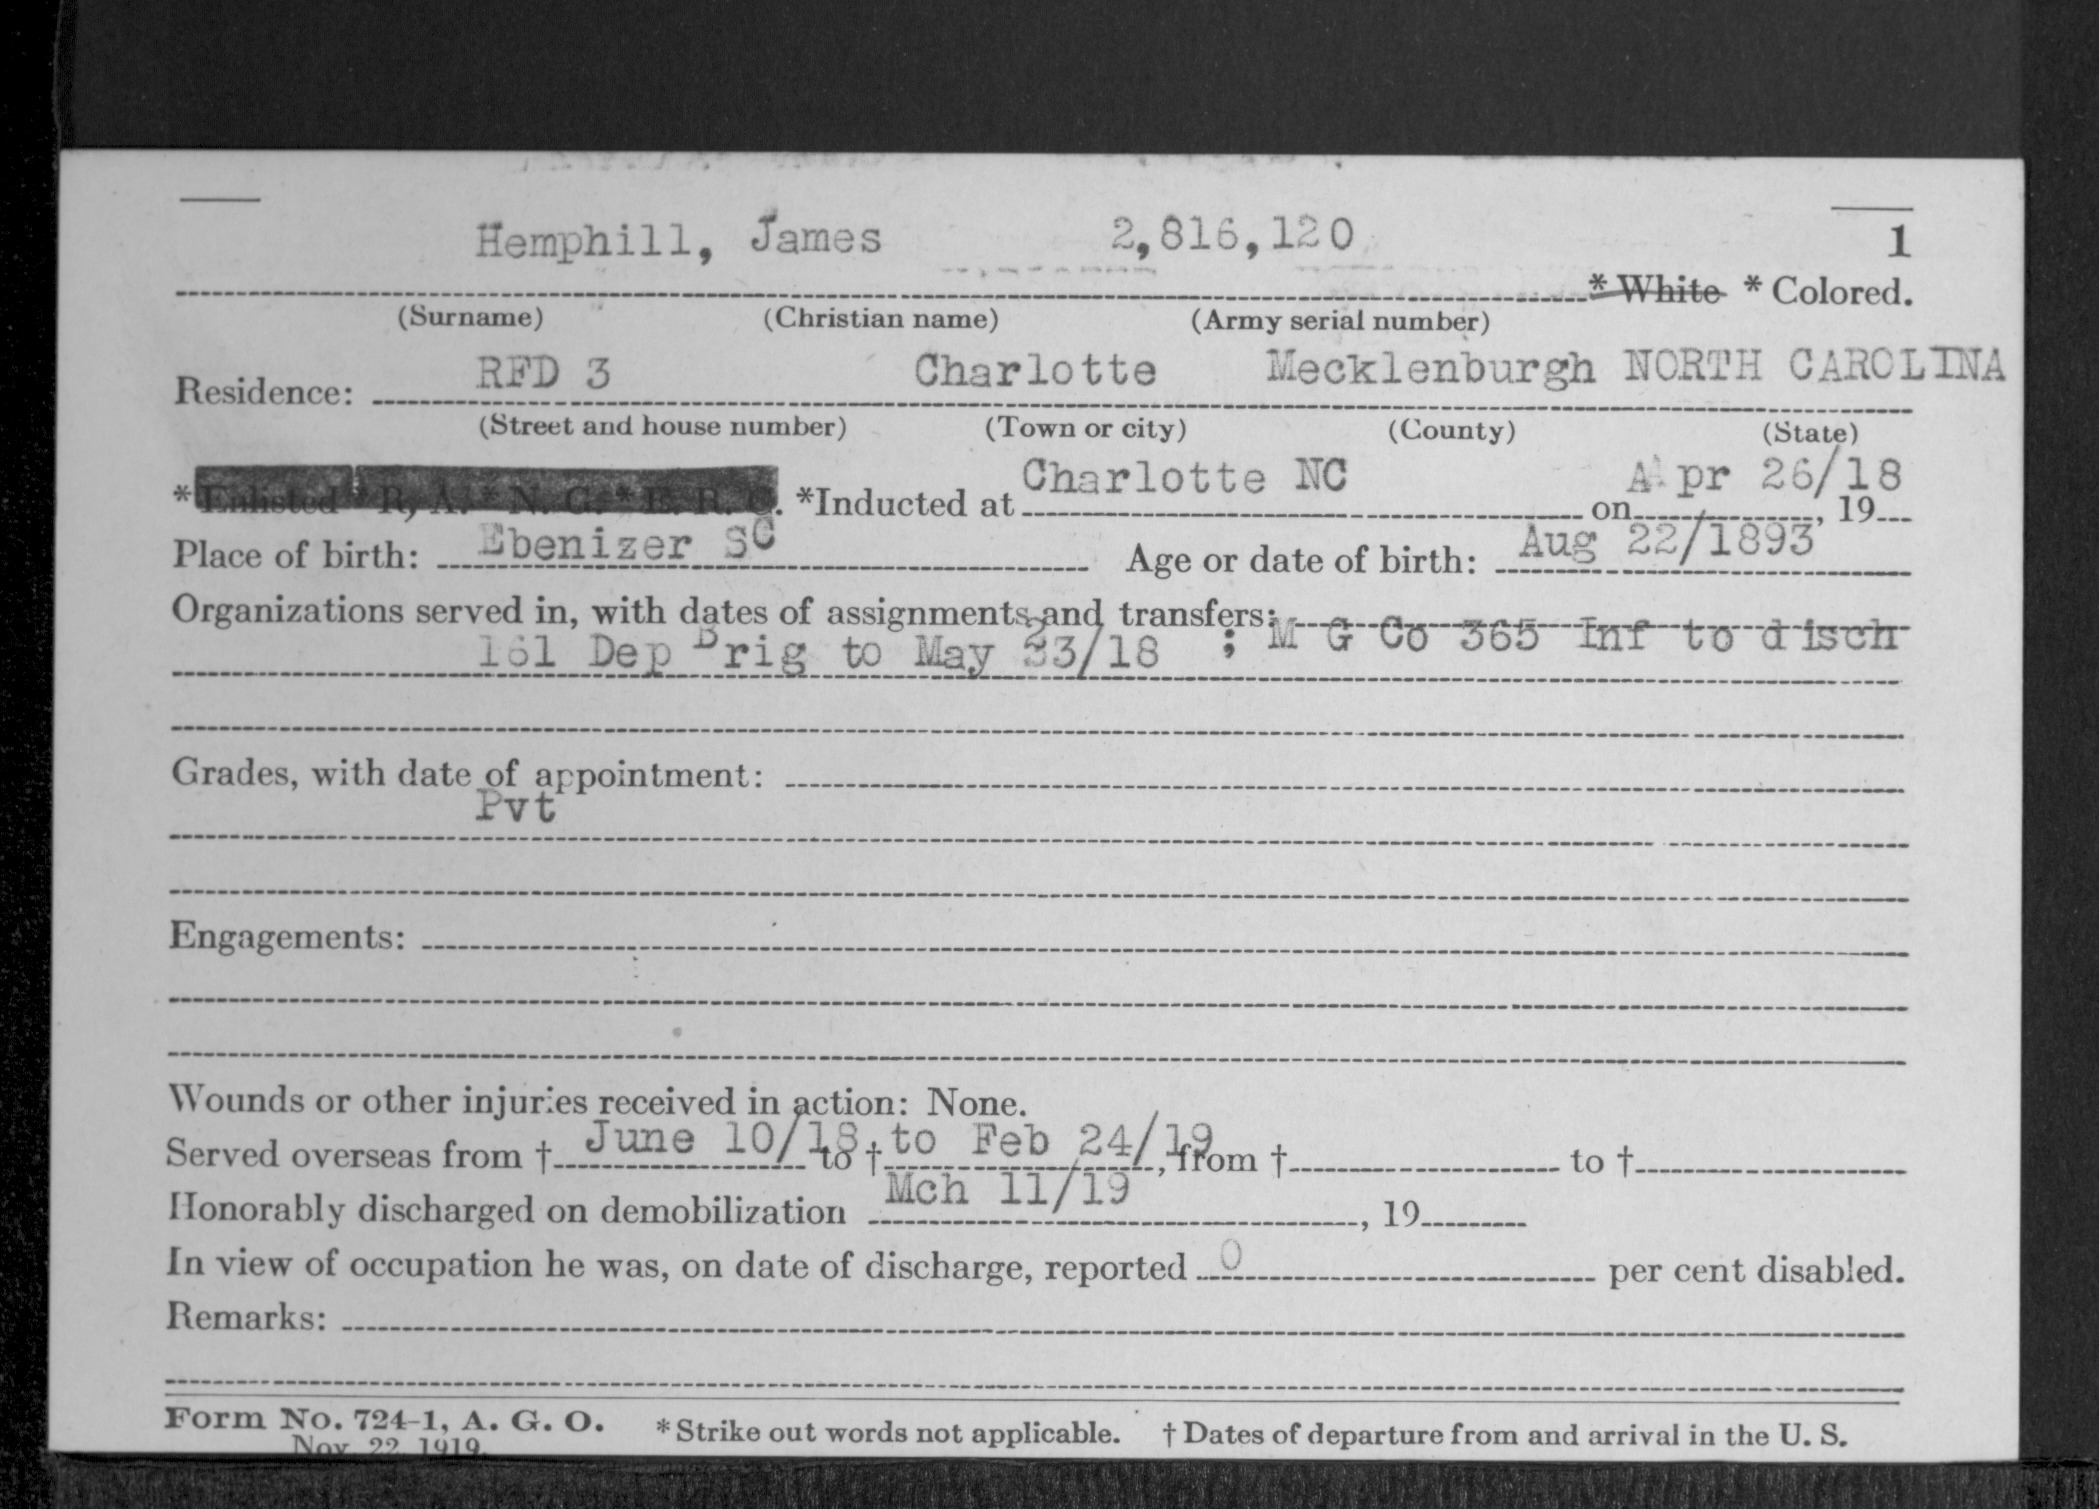 Hemphill, James 2,816,120 1
* White * Colored.
(Surname) (Christian name) (Army serial number)
Residence: RFD 3 Charlotte Mecklenburgh NORTH CAROLINA
(Street and house number) (Town or city) (County) (State)
* Enlisted * R. A. * N. G. * E. R. C. *Inducted at Charlotte NC on Apr 26/18, 19
Place of birth: Ebenizer SC Age or date of birth: Aug 22/1893
Organizations served in, with dates of assignments and transfers:
161 Dep Brig to May 23/18 ; M G Co 365 Inf to disch
Grades, with date of appointment:
Pvt
Engagements:
Wounds or other injuries received in action: None.
Served overseas from † June 10/18 to † to Feb 24/19, from † to †
Honorably discharged on demobilization Mch 11/19, 19
In view of occupation he was, on date of discharge, reported 0 per cent disabled.
Remarks:
Form No. 724-1, A. G. O. * Strike out words not applicable. † Dates of departure from and arrival in the U. S.
Nov. 22, 1919.